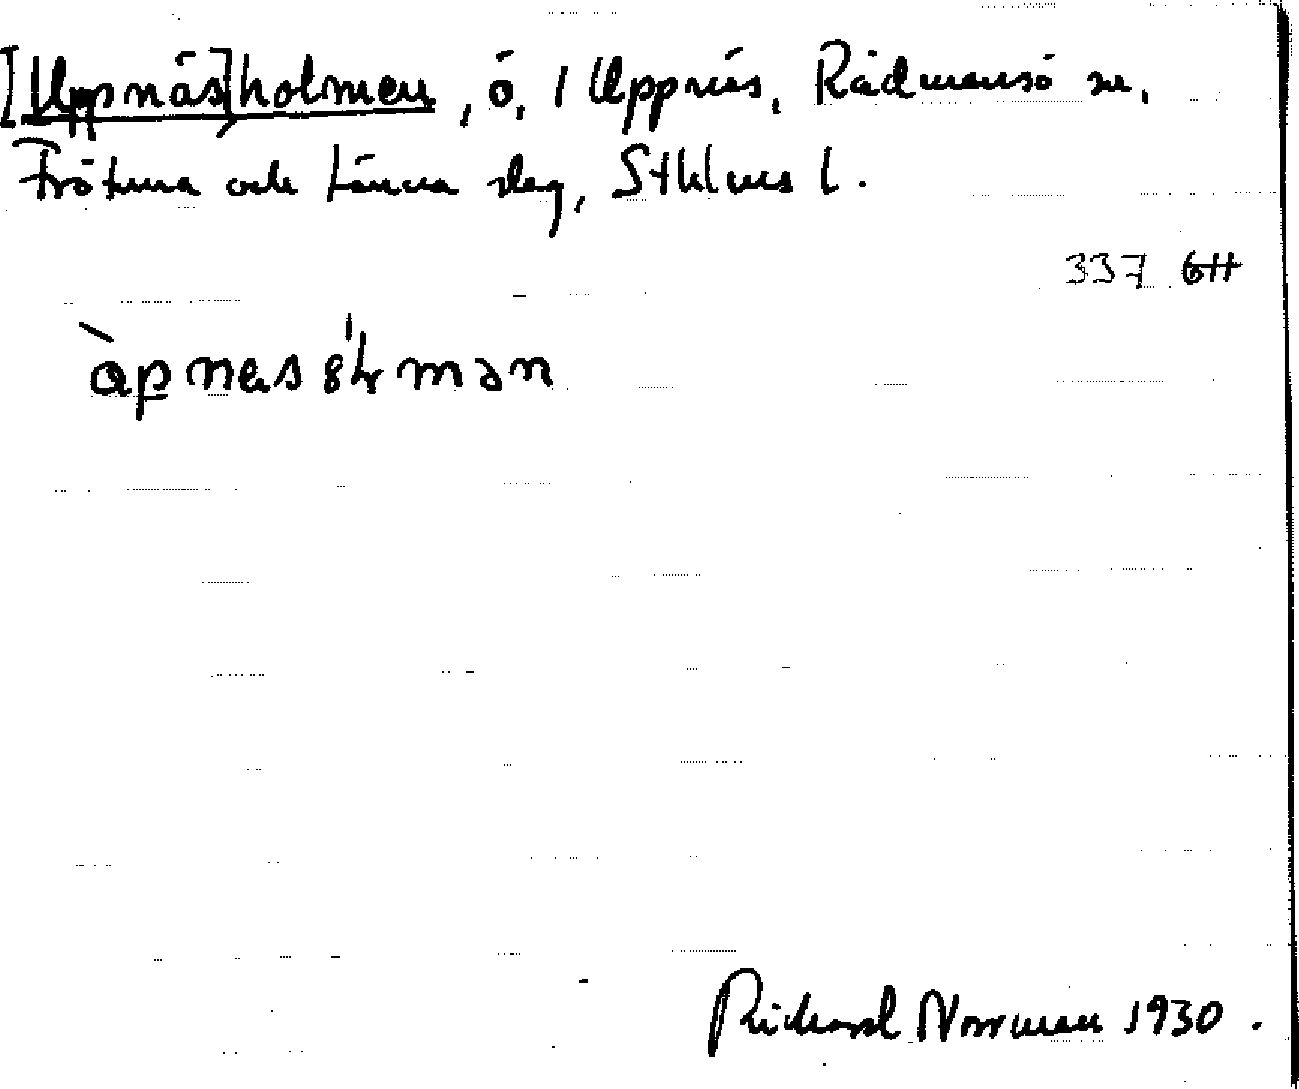 [Uppnäs]holmen, ö, / Uppnäs, Rådmansö sn,
Frötuna och Länna slag, Sthlms l.
337 GH
Richard Norrman 1930.